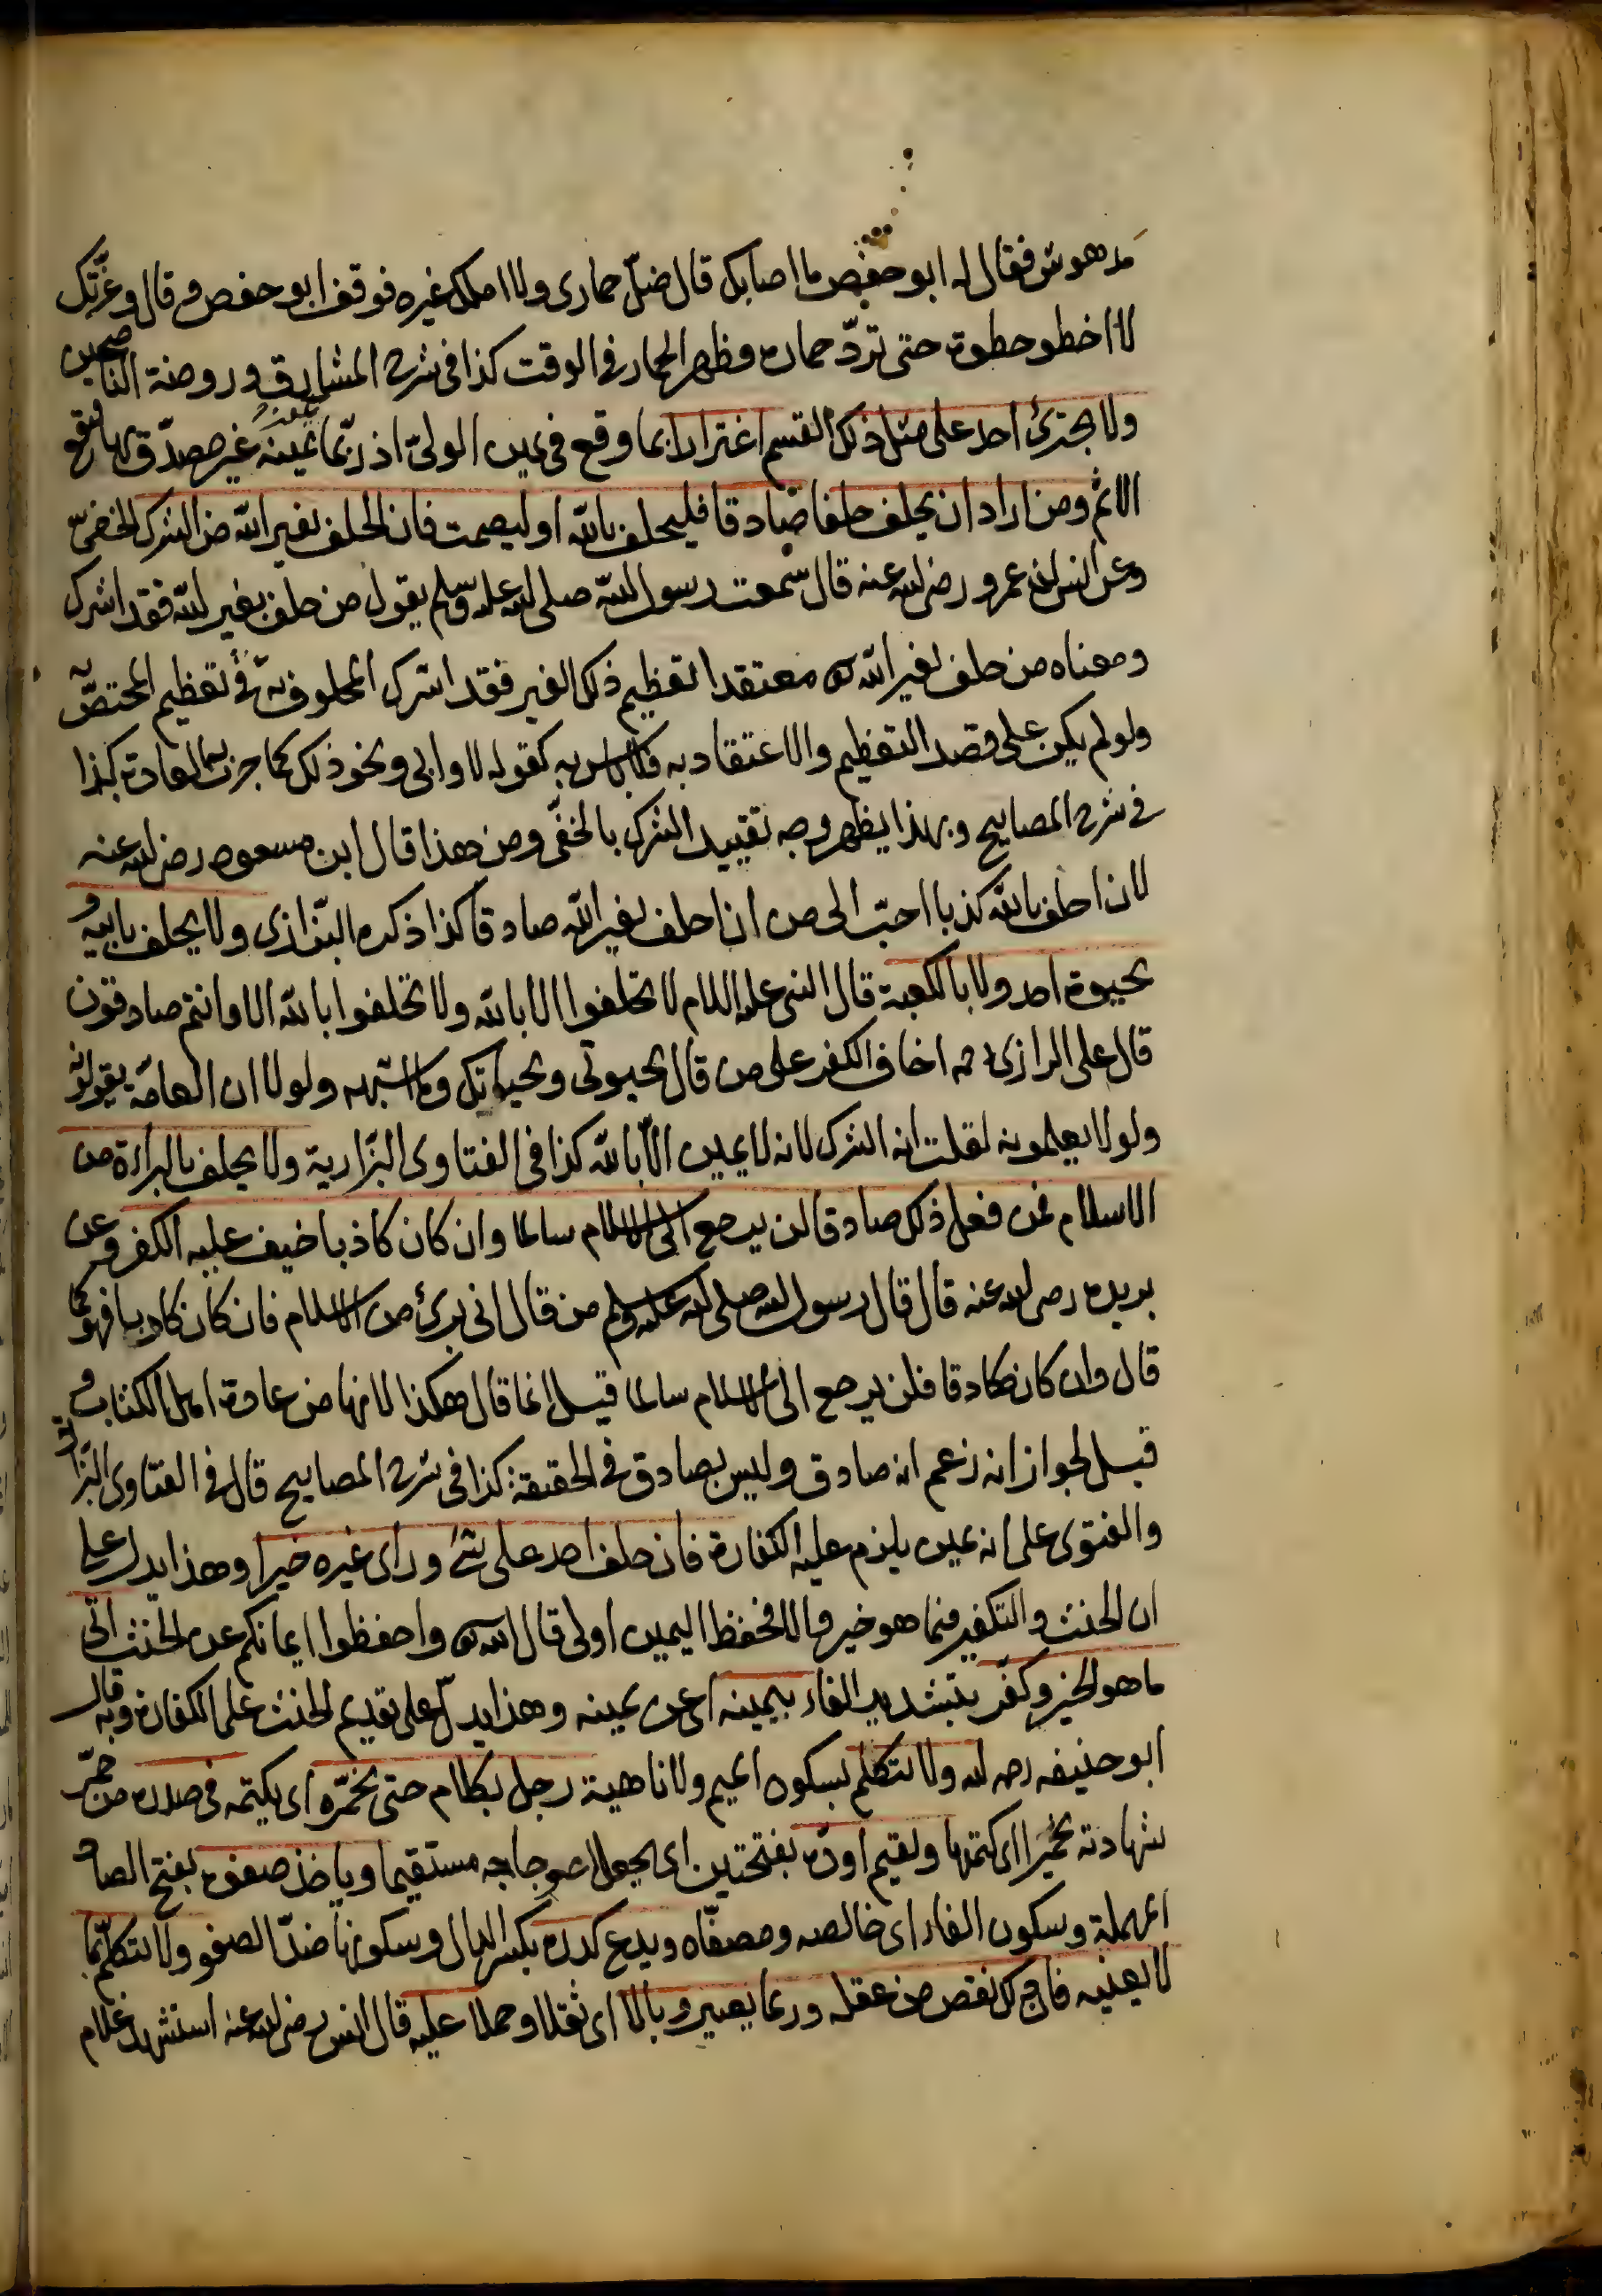 مدهوش فقال له ابو حفص ما اصابك قال ضلّ حماري ولا املك غيره فوقف ابو حفص وقال وعزّتك
لا اخطو خطوة حتى تردّ حماره وظهر الحمار في الوقت كذا في شرح المشارق وروضة الناصحين
ولا يجترئ احد على مثل ذلك القسم اغترارا بما وقع في يمين الوليّ اذ ربّما يمينه غير مصدّق بها فيقع
الاثم ومن اراد ان يحلف حلفا صادقا فليحلف بالله او ليصمت فان الحلف بغير الله من الشرك الخفيّ
وعن عمرو رضي الله عنه قال سمعت رسول الله صلى الله عليه وسلم يقول من حلف بغير الله فقد اشرك
ومعناه من حلف بغير الله تع معتقدا تعظيم ذلك الغير فقد اشرك المحلوف به في تعظيم المختصّ به
ولو لم يكن على قصد التعظيم والاعتقاد به فلا باس به كقوله لا وابي ونحو ذلك كما جرت به العادة كذا
في شرح المصابيح وبهذا يظهر وجه تقييد الشرك بالخفّي ومن هذا قال ابن مسعود رضي الله عنه
لان احلف بالله كذبا احبّ الى من ان احلف بغير الله صادقا كذا ذكره البزّازي ولا يحلف بابيه و
بحيوة احد ولا بالكعبة قال النبي عليه السلام لا تحلفوا الا بالله ولا تحلفوا بالله الا وانتم صادقون
قال على الرازي رح اخاف الكفر على من قال بحيوتي وبحياتك وما اشبهه ولولا ان العامة يقولونه
ولو لا يعلمونه لقلت انه الشرك لانه لا يمين الّا بالله كذا في الفتاوى البزّازية ولا يحلف بالبراءة من
الاسلام فمن فعل ذلك صادقا لن يرجع الى الاسلام سالما وان كان كاذبا خيف عليه الكفر وعن
بريده رضي الله عنه قال قال رسول الله صلى الله عليه وسلم من قال اني برئ من الاسلام فان كان كاذبا فهو كما
قال وان كان صادقا فلن يرجع الى الاسلام سالما قيل انما قال هكذا لانها من عادة اهل الكتاب و
قيل لجواز انه زعم انه صادق وليس بصادق في الحقيقة كذا في شرح المصابيح قال في الفتاوى البزّازية
والفتوى على انه يمين يلزم عليه الكفارة فان حلف احد على شئ وراى غيره خيرا وهذا يدل على
ان الحنث والتكفير فيما هو خير والا فحفظ اليمين اولى قال الله تع واحفظوا ايمانكم عن الحنث اتى
ما هو الخير وكفّر بتشديد الفاء بيمينه اى عن يمينه وهذا يدلّ على تقديم الحنث على الكفارة وبه قال
ابو حنيفه رحمه الله ولا لتكلّم بسكون الميم ولا ناهية رجل بكلام حتى يخمّره اى يكتمه في صدره من خمّر
شهادته تخميرا اى كتمها ولقيم اوده بفتحتين اى يجعل اعوجاجه مستقيما وياخذ صفوه بفتح الصاد
المهملة وسكون الفاء اى خالصه ومصفّاه ويدع كدره بكسر الدال وسكونها ضدّ الصفو ولا لتكلّم بما
لا يعنيه فان ذلك نقص من عقله وربما يصير وبالا اى ثقلا وحملا عليه قال انس رضي الله عنه استشهد غلام